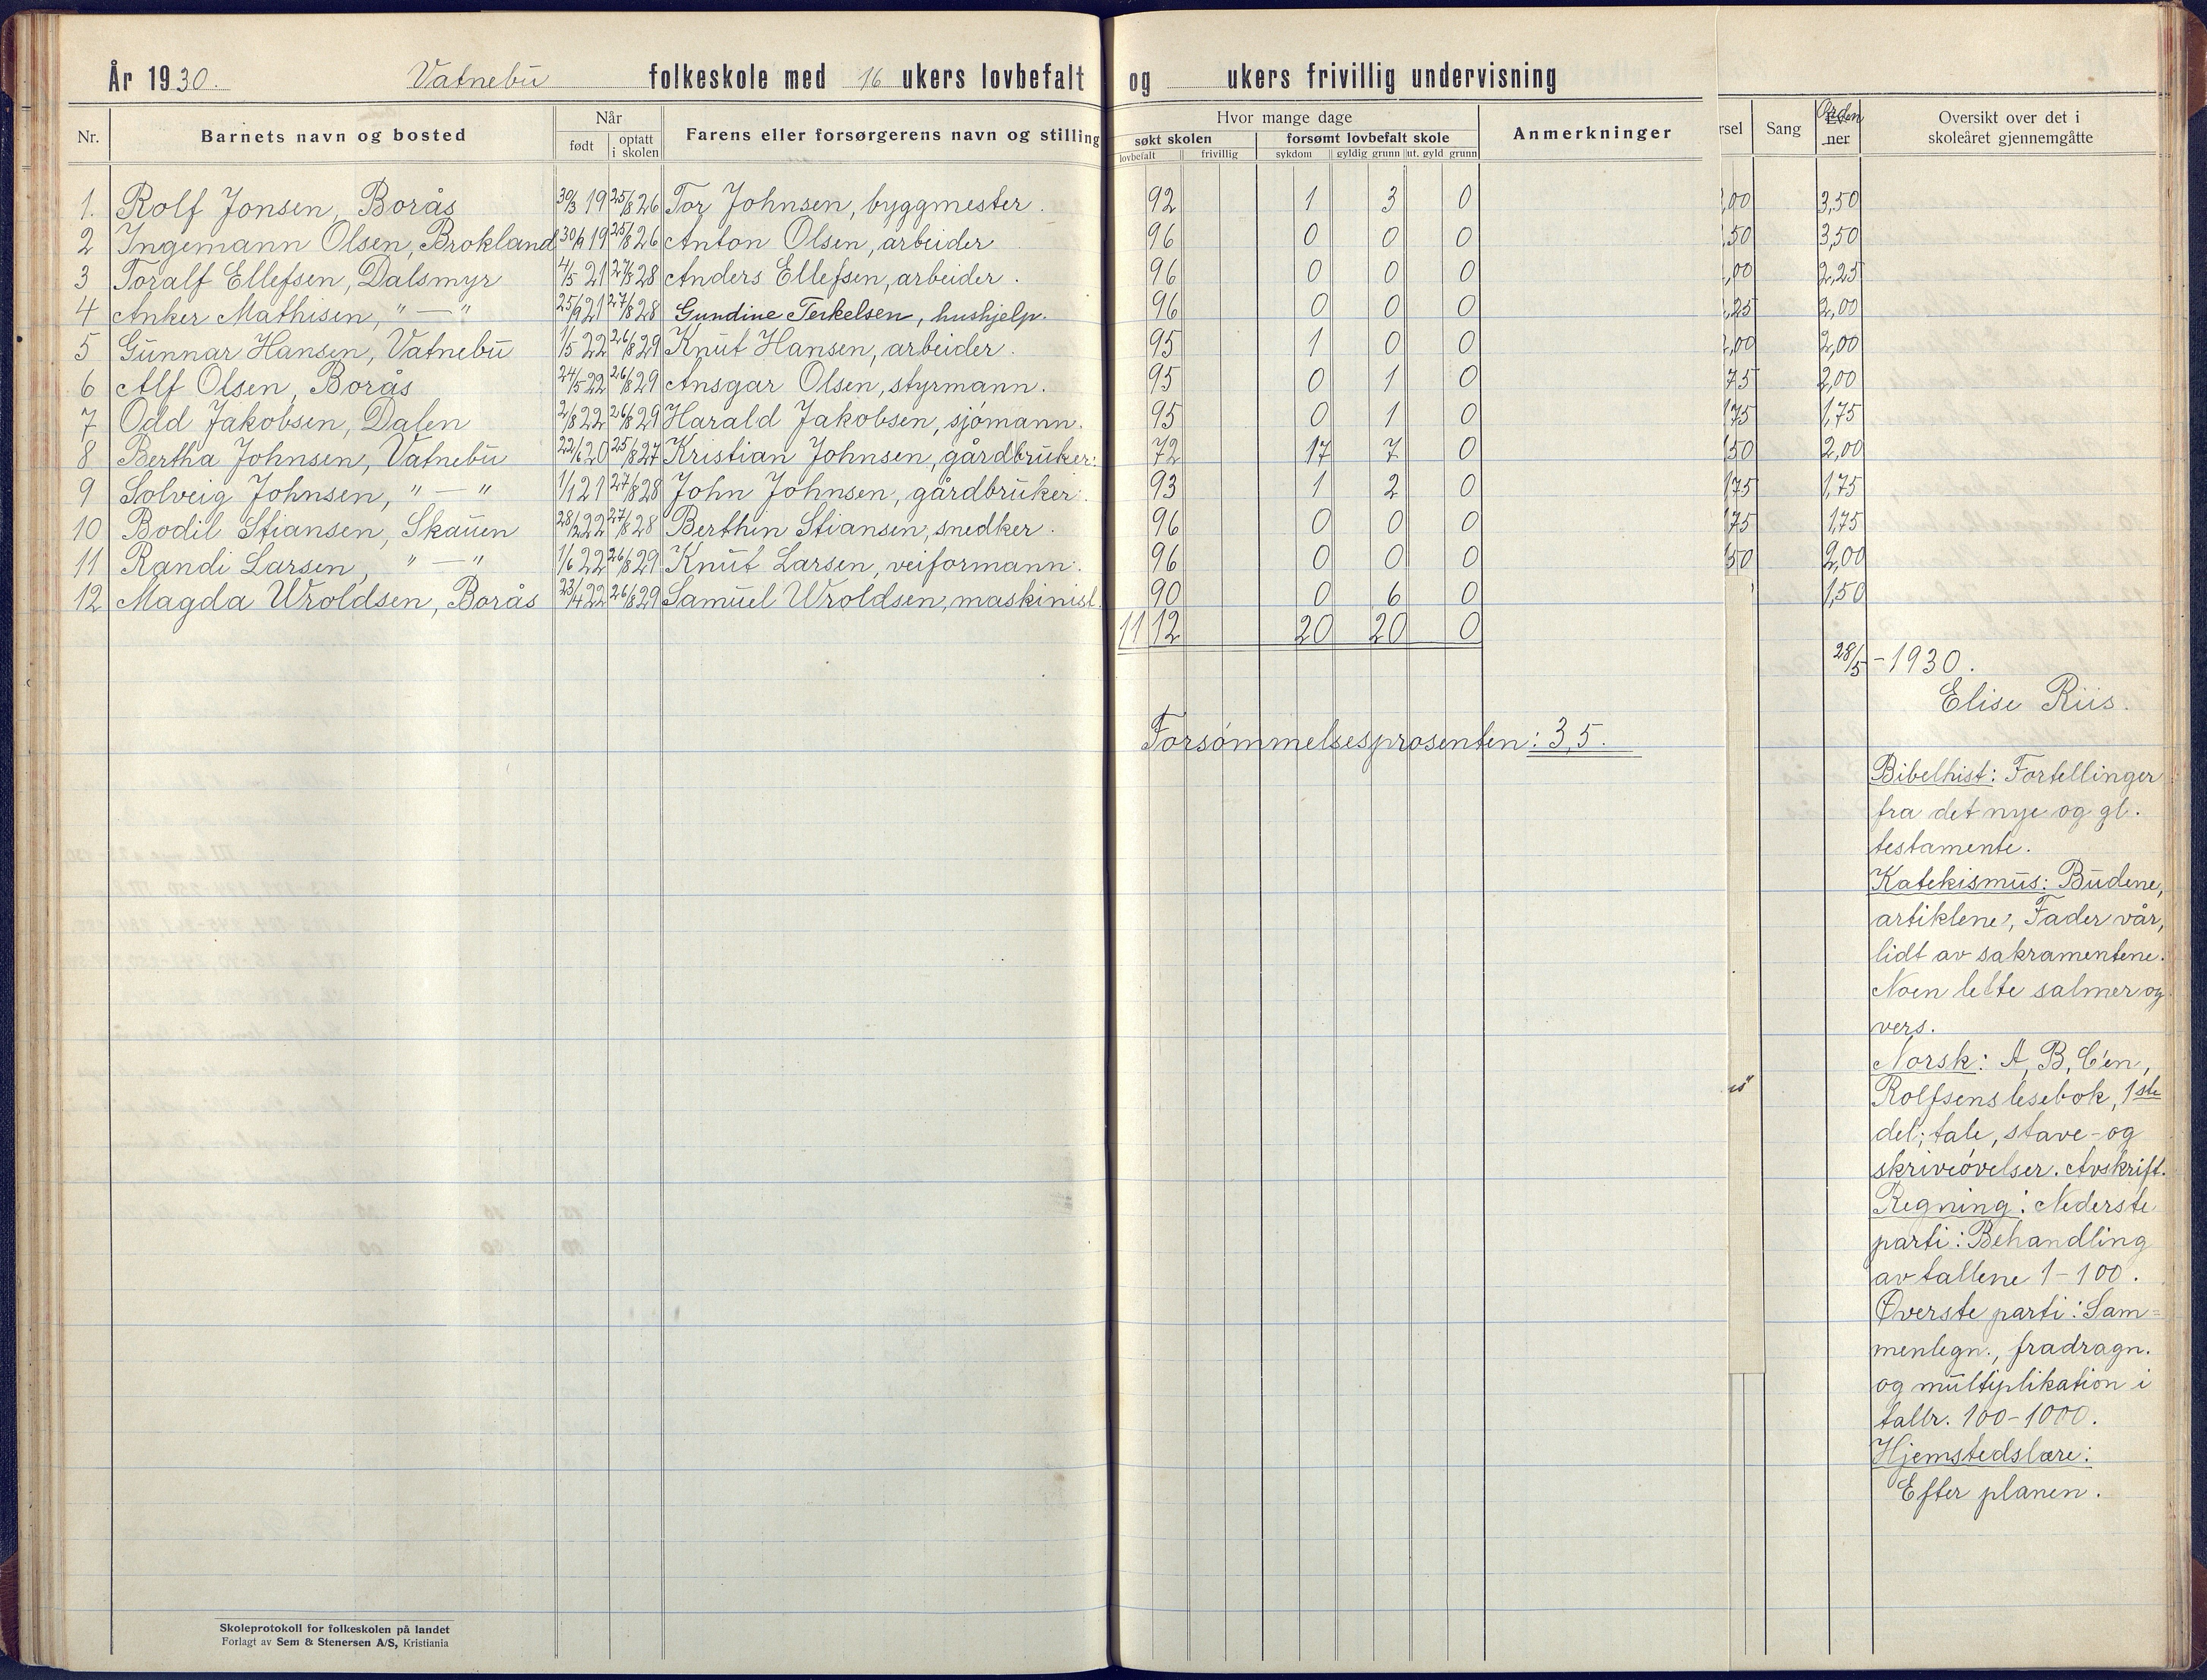 År 1930. Vatnebu folkeskole med 16 ukers lovbefalt og ukers frivillig undervisning
Nr. Barnets navn og bosted Når født optatt i skolen Farens eller forsørgerens navn og stilling Hvor mange dage søkt skolen lovbefalt frivillig forsømt lovbefalt skole sykdom gyldig grunn ut. gyld grunn Anmerkninger rsel Sang Orden Ev- ner Oversikt over det i skoleåret gjennemgåtte
1. Rolf Jonsen, Borås 30/3 19 25/8 26 Tor Johnsen, byggmester. 92 1 3 0 ,00 3,50
2 Ingemann Olsen, Brokland 30/9 19 25/8 26 Anton Olsen, arbeider 96 0 0 0 ,50 3,50
3 Toralf Ellefsen, Dalsmyr 4/5 21 27/8 28 Anders Ellefsen, arbeider. 96 0 0 0 ,00 2,25
4 Anker Mathisen, " — " 25/9 21 27/8 28 Gundine Terkelsen, hushjelp. 96 0 0 0 ,25 2,00
5 Gunnar Hansen, Vatnebu 1/5 22 26/8 29 Knut Hansen, arbeider. 95 1 0 0 ,00 2,00
6 Alf Olsen, Borås 24/5 22 26/8 29 Ansgar Olsen, styrmann. 95 0 1 0 75 2,00
7 Odd Jakobsen, Dalen 2/8 22 26/8 29 Harald Jakobsen, sjömann. 95 0 1 0 75 1,75
8 Bertha Johnsen, Vatnebu 22/6 20 25/8 27 Kristian Johnsen, gårdbruker. 72 17 7 0 50 2,00
9 Solveig Johnsen, " — " 1/1 21 27/8 28 John Johnsen, gårdbruker. 93 1 2 0 75 1,75
10 Bodil Stiansen, Skauen 28/2 22 27/8 28 Berthin Stiansen, snedker. 96 0 0 0 75 1,75
11 Randi Larsen, " — " 1/6 22 26/8 29 Knut Larsen, veiformann. 96 0 0 0 50 2,00
12 Magda Wroldsen, Borås 23/4 22 26/8 29 Samuel Wroldsen, maskinist. 90 0 6 0 1,50
1112 20 20 0
28/5 - 1930.
Elise Riis.
Forsömmelsesprosenten: 3,5.
Bibelhist: Fortellinger
fra det nye og gl.
testamente.
Katekismus: Budene,
artiklene, Fader vår,
lidt av sakramentene.
Noen lette salmer og
vers.
Norsk: A, B, C'en,
Rolfsens lesebok, 1ste
del; tale, stave- og
skriveövelser. Avskrift.
Regning: Nederste
parti: Behandling
av tallene 1-100.
Øverste parti: Sam=
menlegn., fradragn.
og multiplikation i
tallr. 100-1000.
Hjemstedslære:
Efter planen.
Skoleprotokoll for folkeskolen på landet
Forlagt av Sem & Stenersen A/S, Kristiania